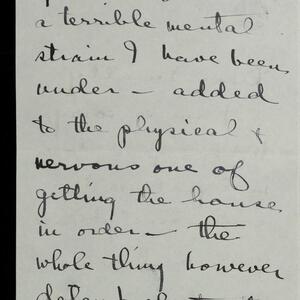 a terrible mental
strain I have been
under – added
to the physical &
nervous one of
getting the house
in order – the
whole thing however